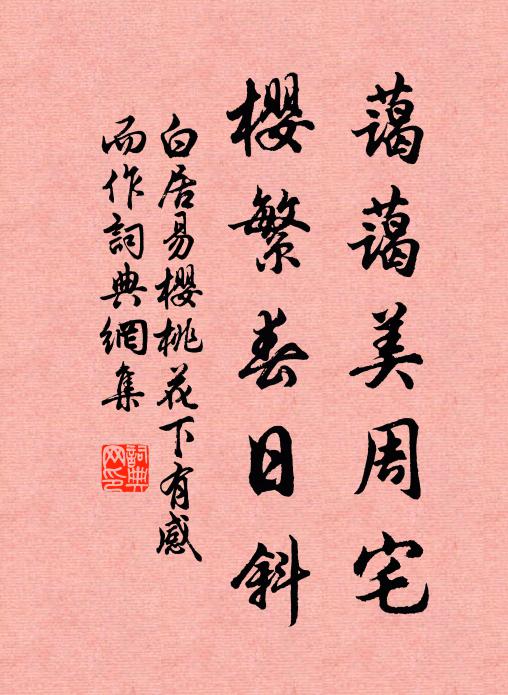 藹藹美周宅
櫻繁春日斜
白居易櫻桃花下有感
而作詞典網集
詞典
网印